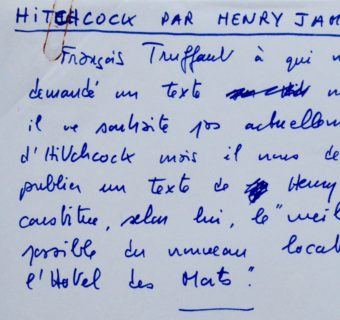 HITCHCOCK PAR HENRY JAM
François Truffaut à qui n
demandé un texte
il ne souhaite pas actuellem
d'Hitchcock mais il nous de
publier un texte de Henry
constitue, selon lui, le "meil
possible du nouveau loca
l'Hôtel des Mots".